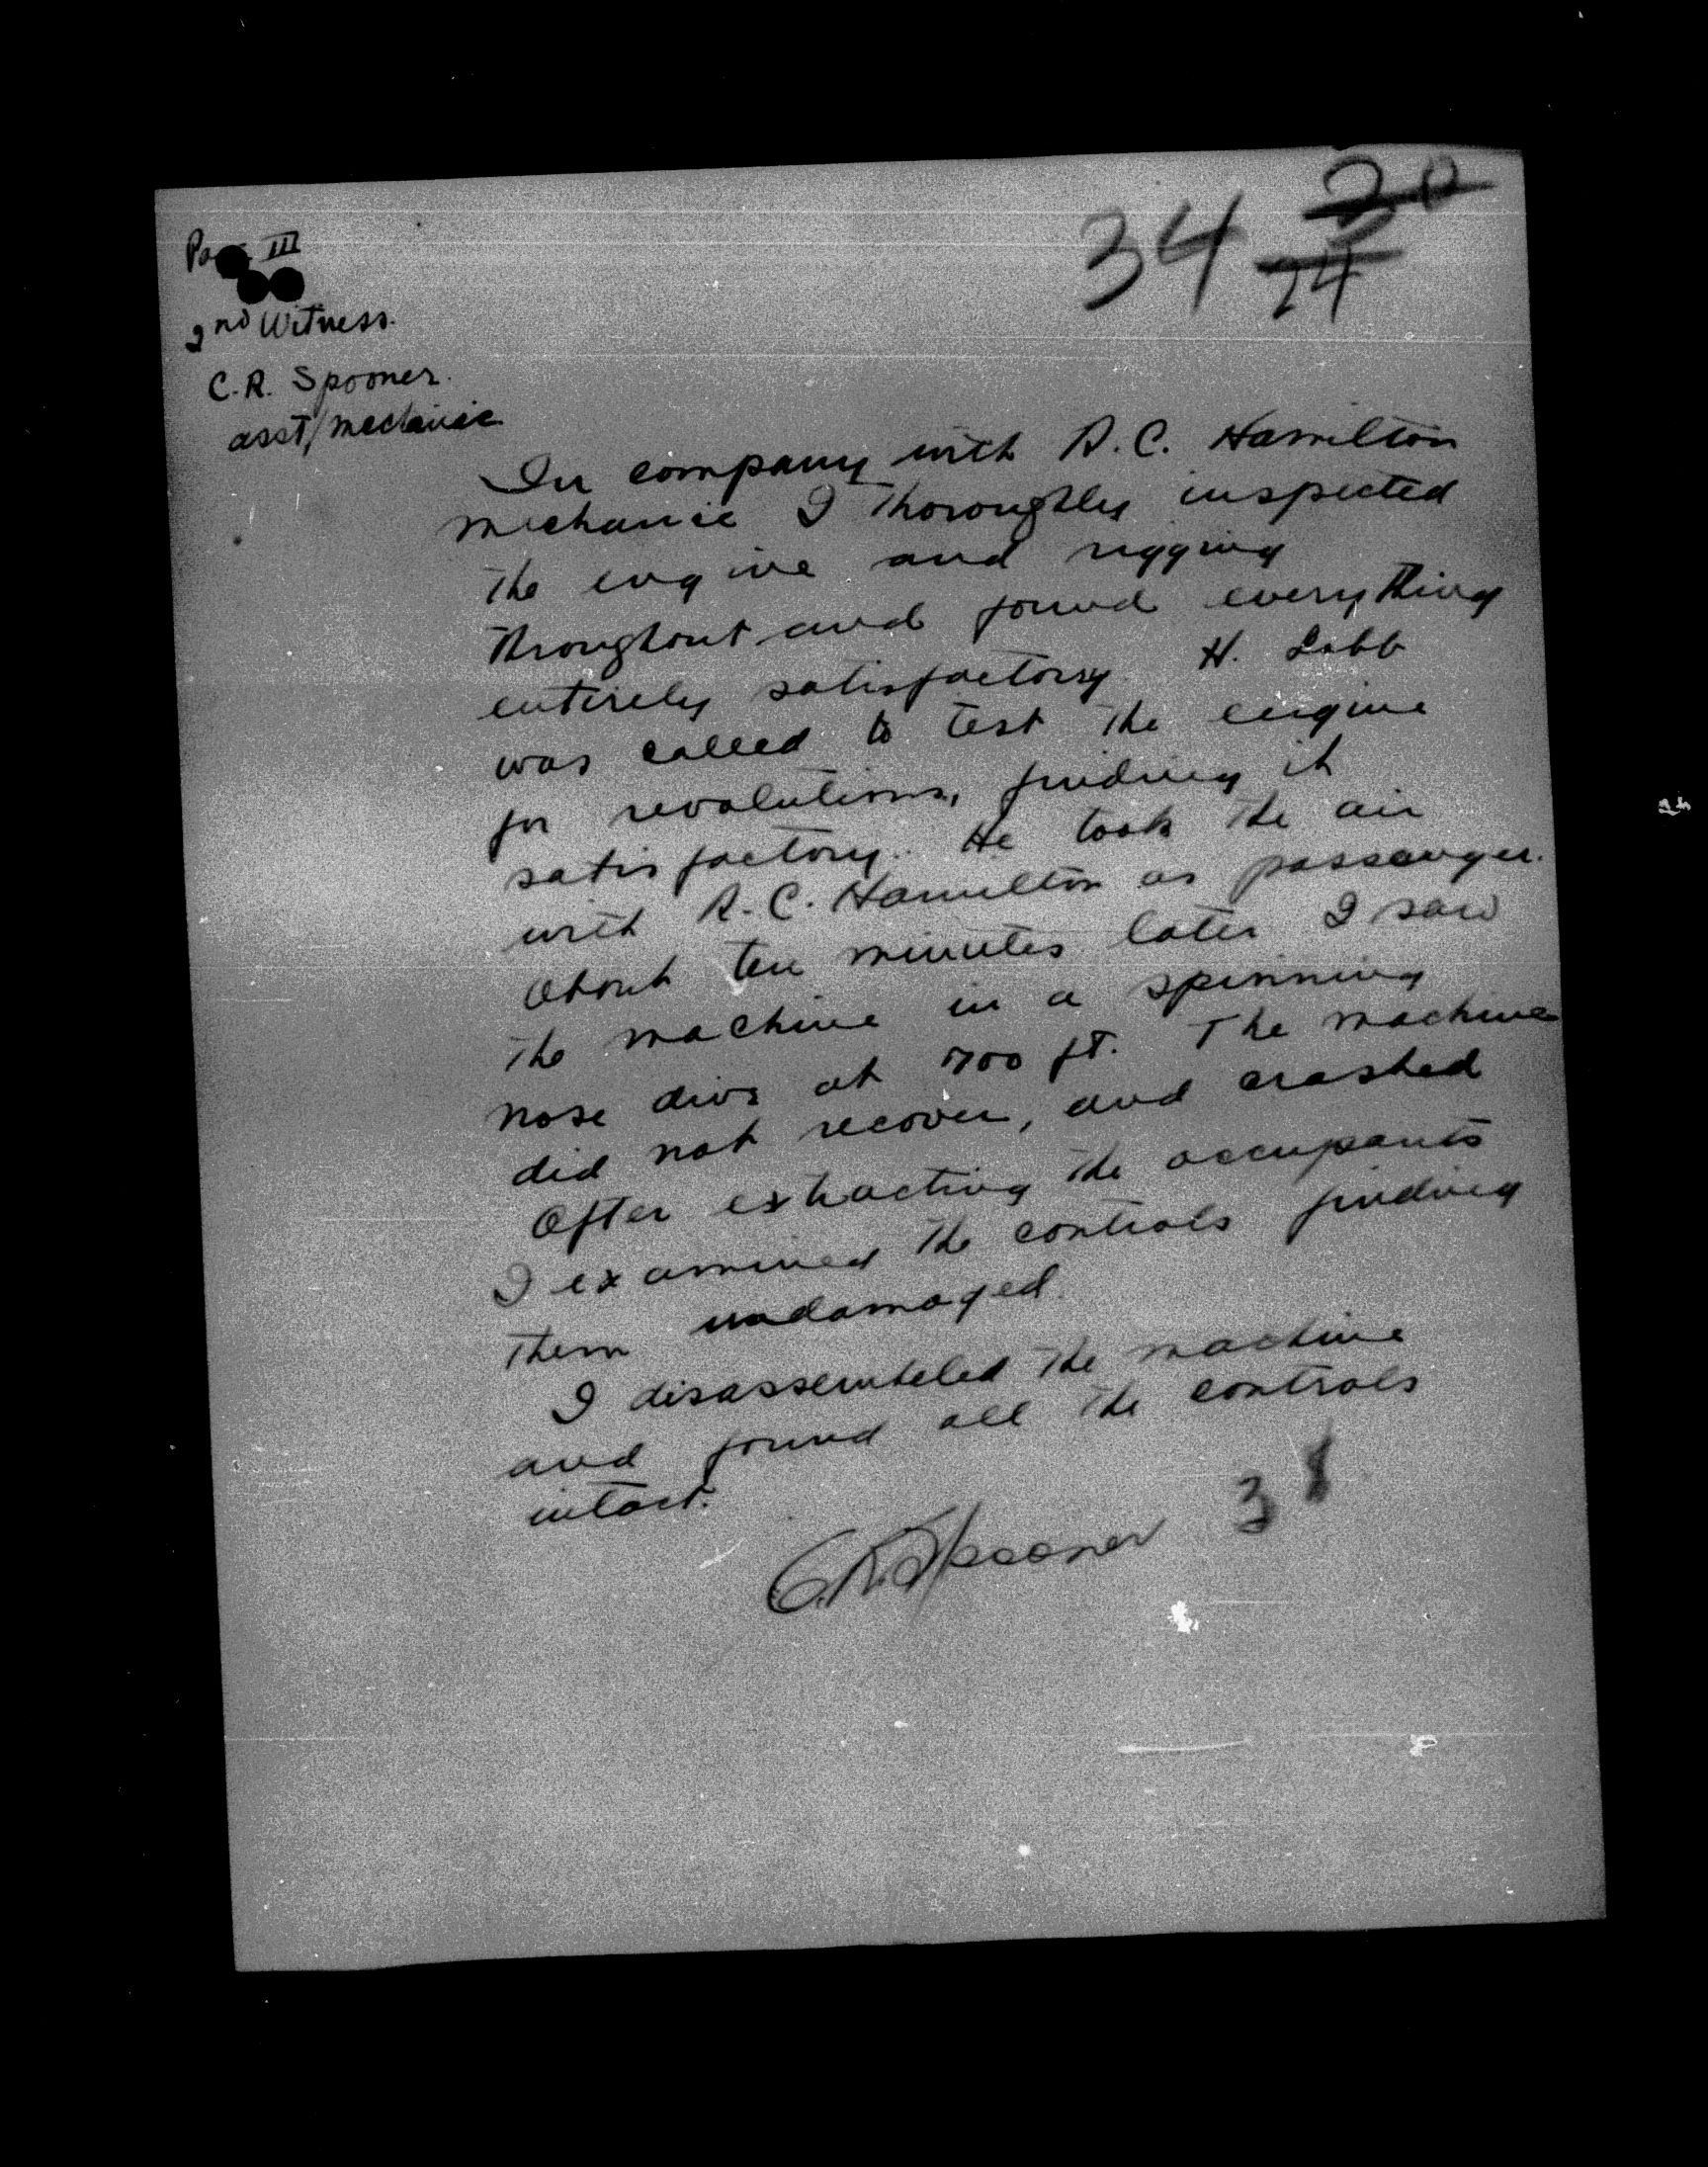 Page III
34
20
24
2nd Witness.
C.R. Spooner.
asst/mechanic
In company with R.C. Hamilton
mechanic I thoroughly inspected
the engine and rigging
throughout and found everything
entirely satisfactory. H. Lobb
was called to test the engine
for revolutions, finding it
satisfactory. He took the air
with R.C. Hamilton as passanger.
About ten minutes later I saw
the machine in a spinning
nose dive at 700 ft. The machine
did not recover, and crashed
After extracting the occupants
I examined the controls finding
them undamaged.
I disassembeled the machine
and found all the controls
intact.
C.R. Spooner
38